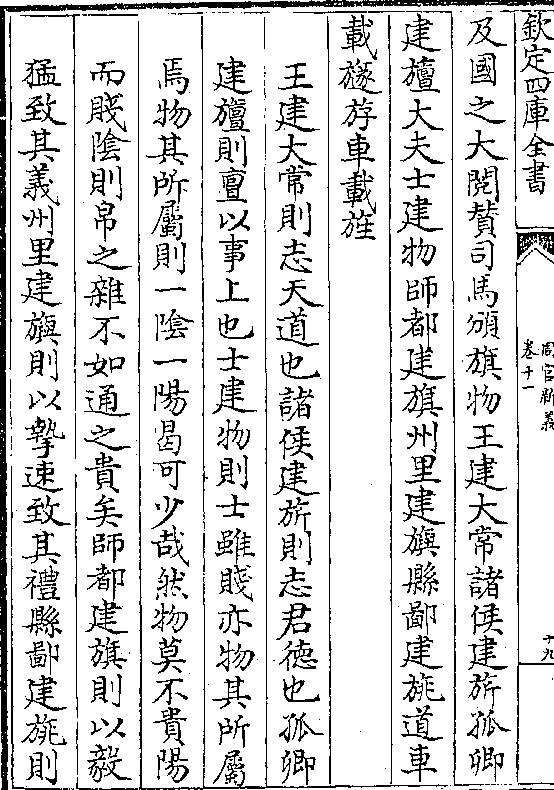 欽定四庫全書
周官新義
卷十一
十九
及國之大閱賛司馬頒旗物王建大常諸侯建旂孤卿
建旜大夫士建物師都建旗州里建旟縣鄙建旐道車
載旞斿車載旌
王建大常則志天道也諸侯建旂則志君徳也孤卿
建旜則亶以事上也士建物則士雖賤亦物其所屬
焉物其所屬則一陰一陽曷可少哉然物莫不貴陽
而賤陰則帛之雜不如通之貴矣師都建旗則以毅
猛致其義州里建旟則以摯速致其禮縣鄙建旐則